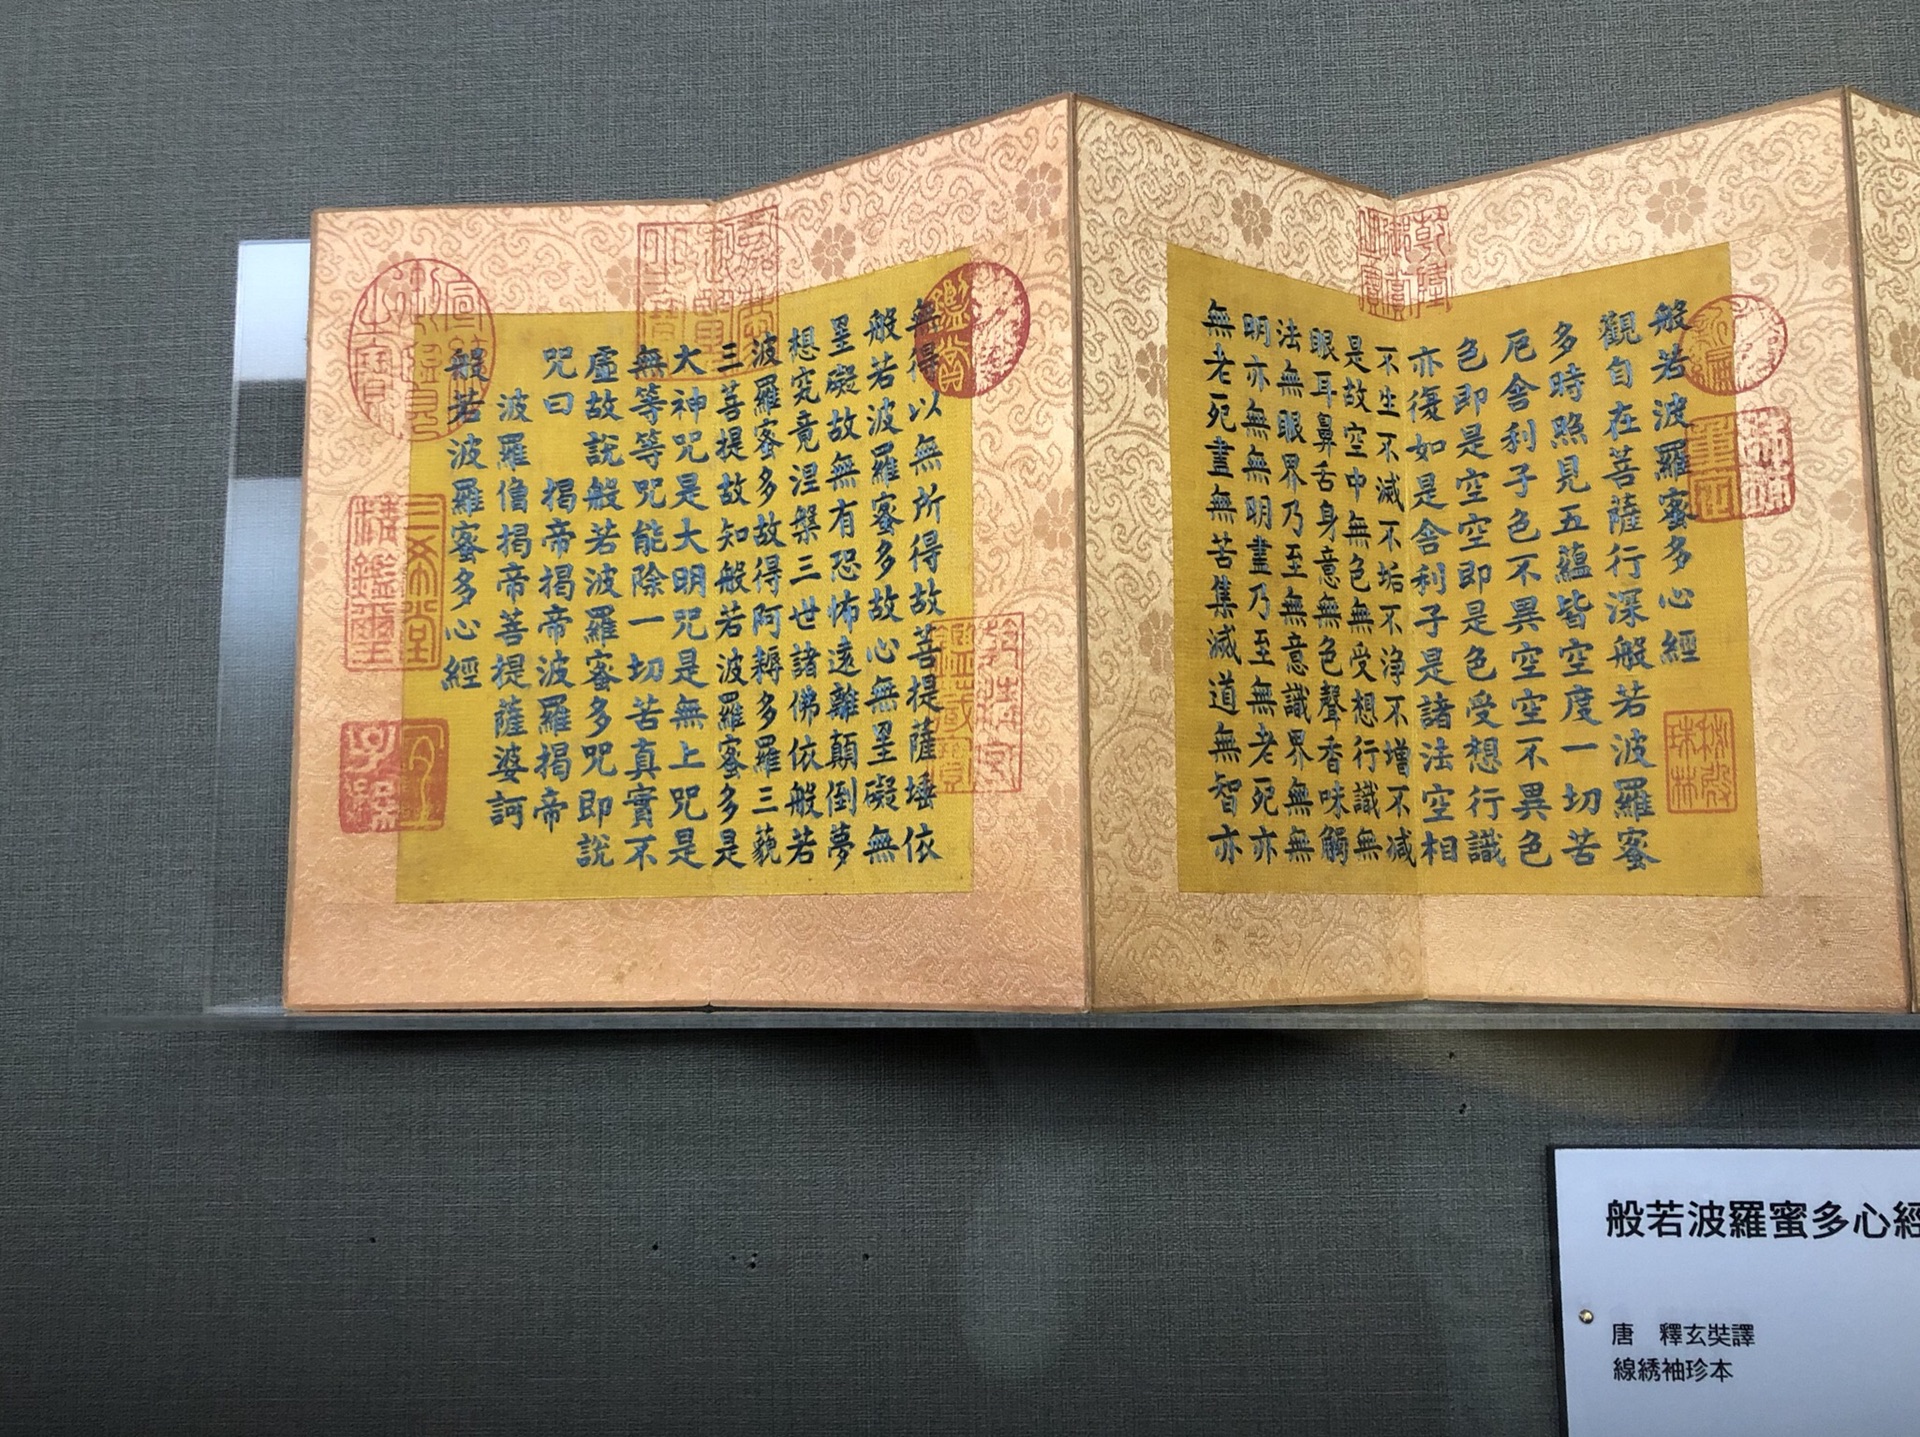 般若波羅蜜多心經
觀自在菩薩行深般若波羅蜜
多時照見五蘊皆空度一切苦
厄舍利子色不異空空不異色
色即是空空即是色受想行識
亦復如是舍利子是諸法空相
不生不滅不垢不淨不增不減
是故空中無色無受想行識無
眼耳鼻舌身意無色聲香味觸
法無眼界乃至無意識界無無
明亦無無明盡乃至無老死亦
無老死盡無苦集滅道無智亦
無得以無所得故菩提薩埵依
般若波羅蜜多故心無罣礙無
罣礙故無有恐怖遠離顛倒夢
想究竟涅槃三世諸佛依般若
波羅蜜多故得阿耨多羅三藐
三菩提故知般若波羅蜜多是
大神咒是大明咒是無上咒是
無等等咒能除一切苦真實不
虛故說般若波羅蜜多咒即說
咒曰 揭帝揭帝波羅揭帝
波羅僧揭帝菩提薩婆訶
般若波羅蜜多心經
乾隆御覽之寶
秘殿珠林
乾隆鑑賞
三希堂
精鑑璽
宜子孫
般若波羅蜜多心經
唐 釋玄奘譯
線綉袖珍本